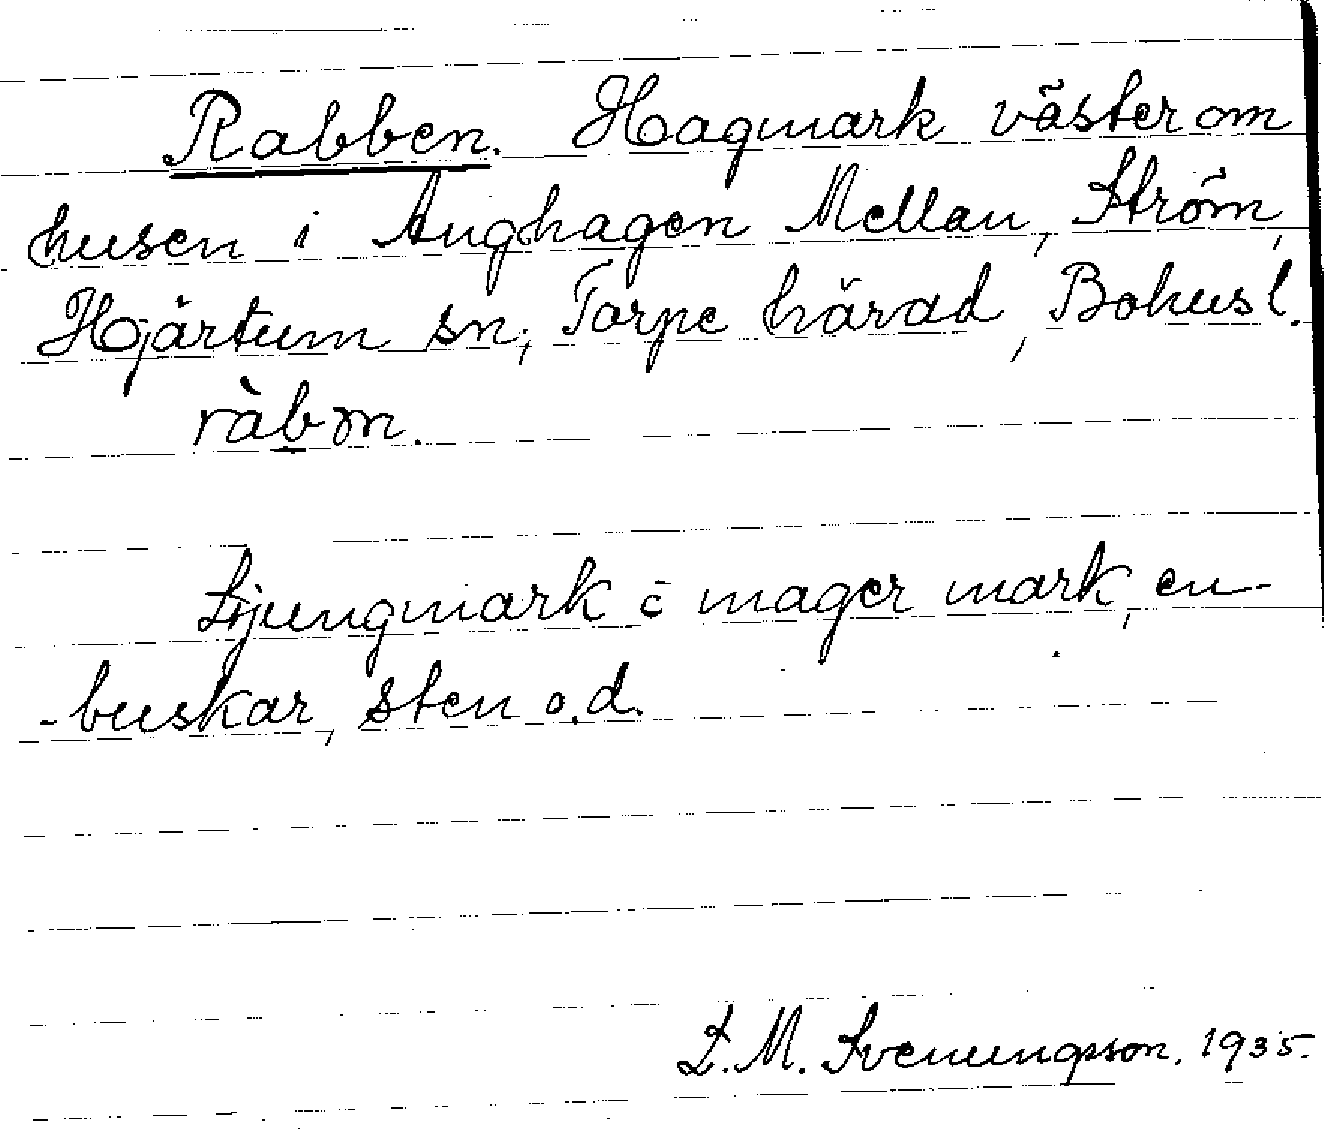 Rabben. Hagmark väster om
husen i Änghagen Mellan, Ström,
Hjärtum sn, Torpe härad, Bohusl.
ràbm.
Ljungmark o mager mark, en-
-buskar, sten o.d.
M. Svenungsson. 1935.